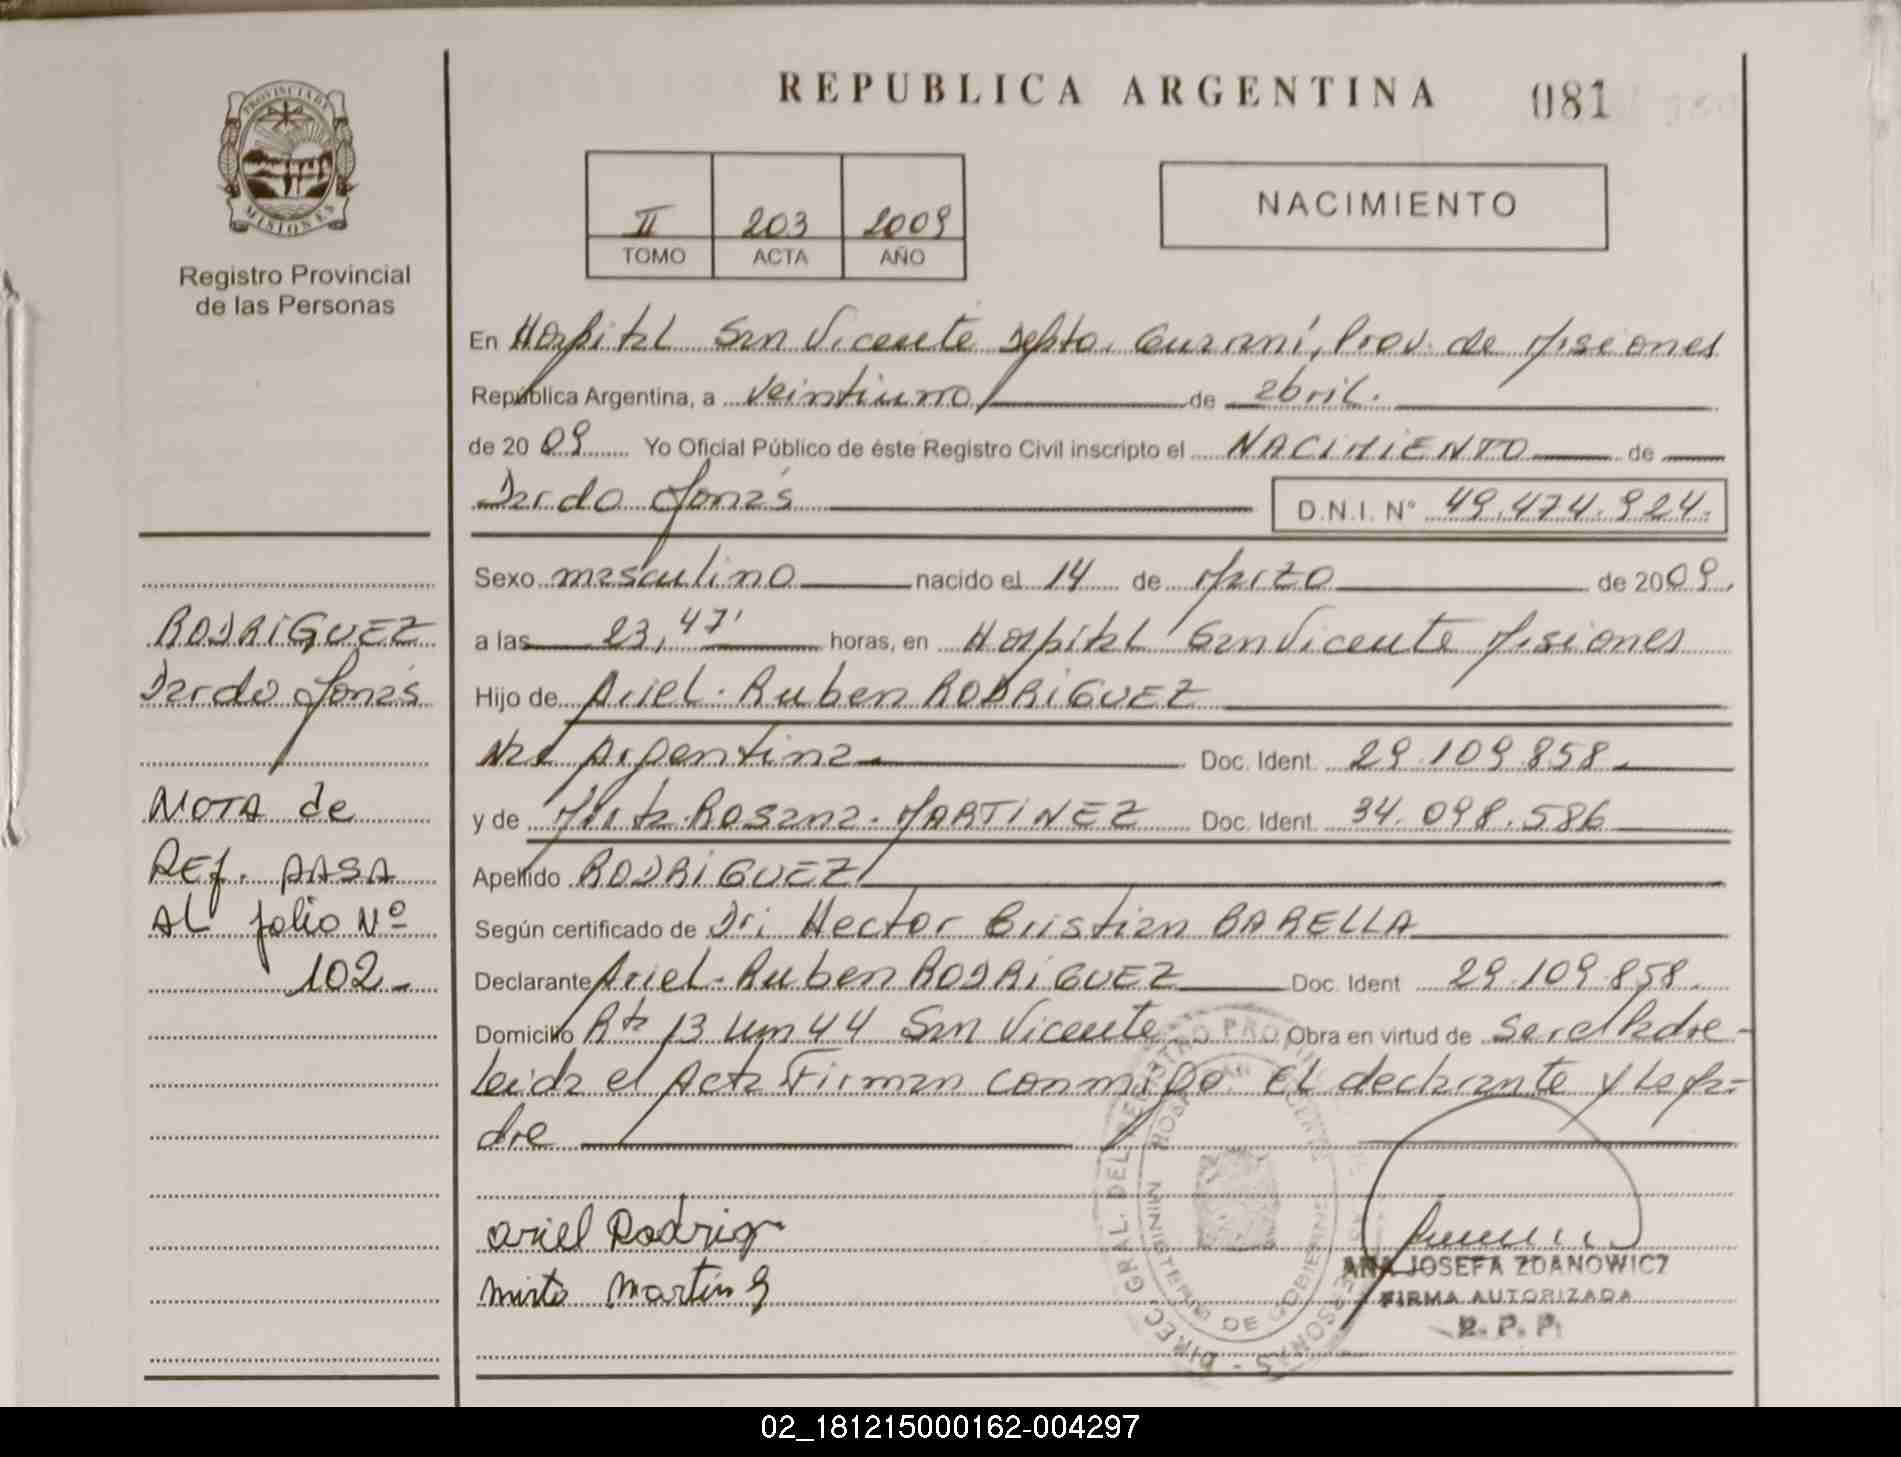 REPUBLICA ARGENTINA 081
PROVINCIA DE
MISIONES
Registro Provincial
de las Personas
II 203 2009
TOMO ACTA AÑO
NACIMIENTO
En Hospital San Vicente Depto. Guaraní, Prov. de Misiones
República Argentina, a veintiuno de abril.
de 2009 Yo Oficial Público de éste Registro Civil inscripto el NACIMIENTO de
Dardo Jonás D.N.I. N° 49.474.924.
Sexo masculino nacido el 14 de Marzo de 2009.
a las 23,47' horas, en Hospital San Vicente Misiones
Hijo de Ariel Ruben RODRIGUEZ
Nac Argentina Doc. Ident. 29.109.858.
y de Mirta Rosana MARTINEZ Doc. Ident. 34.098.586
Apellido RODRIGUEZ
Según certificado de Dr: Hector Cristian BARELLA
Declarante Ariel Ruben RODRIGUEZ Doc. Ident 29.109.858.
Domicilio Rta 13 km 44 San Vicente Obra en virtud de ser el Padre-
Leida el Acta Firman conmigo. El declarante y La Ma-
dre
Ariel Rodrig
Mirta Martin
ANA JOSEFA ZDANOWICZ
FIRMA AUTORIZADA
R. P. P.
DIREC. GRAL. DEL REGISTRO PROVIN PERSONAS
MINISTERIO DE GOBIERNO
RODRIGUEZ
Dardo Jonás
NOTA de
REf. PASA
AL folio Nº
102-
02_181215000162-004297